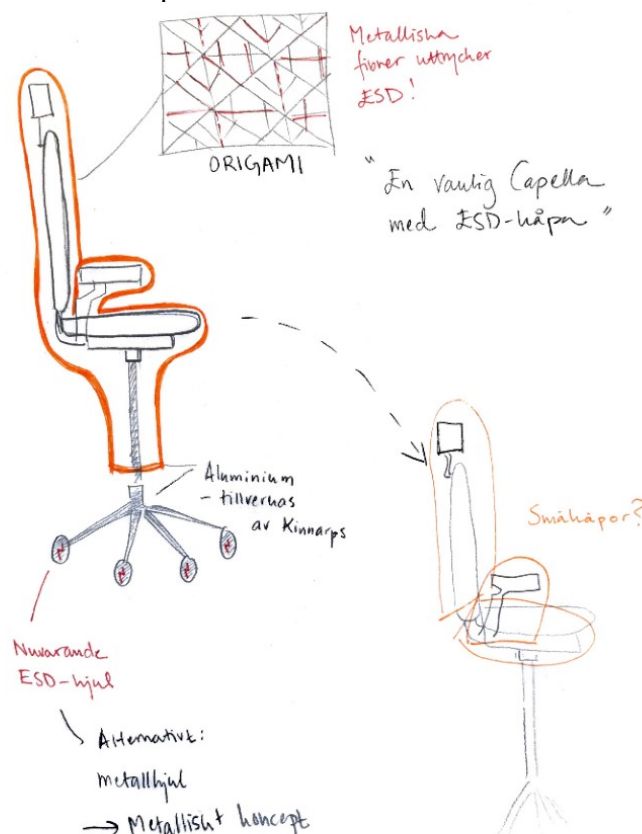 Metalliska
fibrer uttrycker
ESD!
ORIGAMI
"En vanlig Capella
med ESD-kåpa"
Aluminium
- tillverkas
av Kinnarps
Småkåpor?
Nuvarande
ESD-hjul
Alternativt:
metallhjul
→ Metalliskt koncept